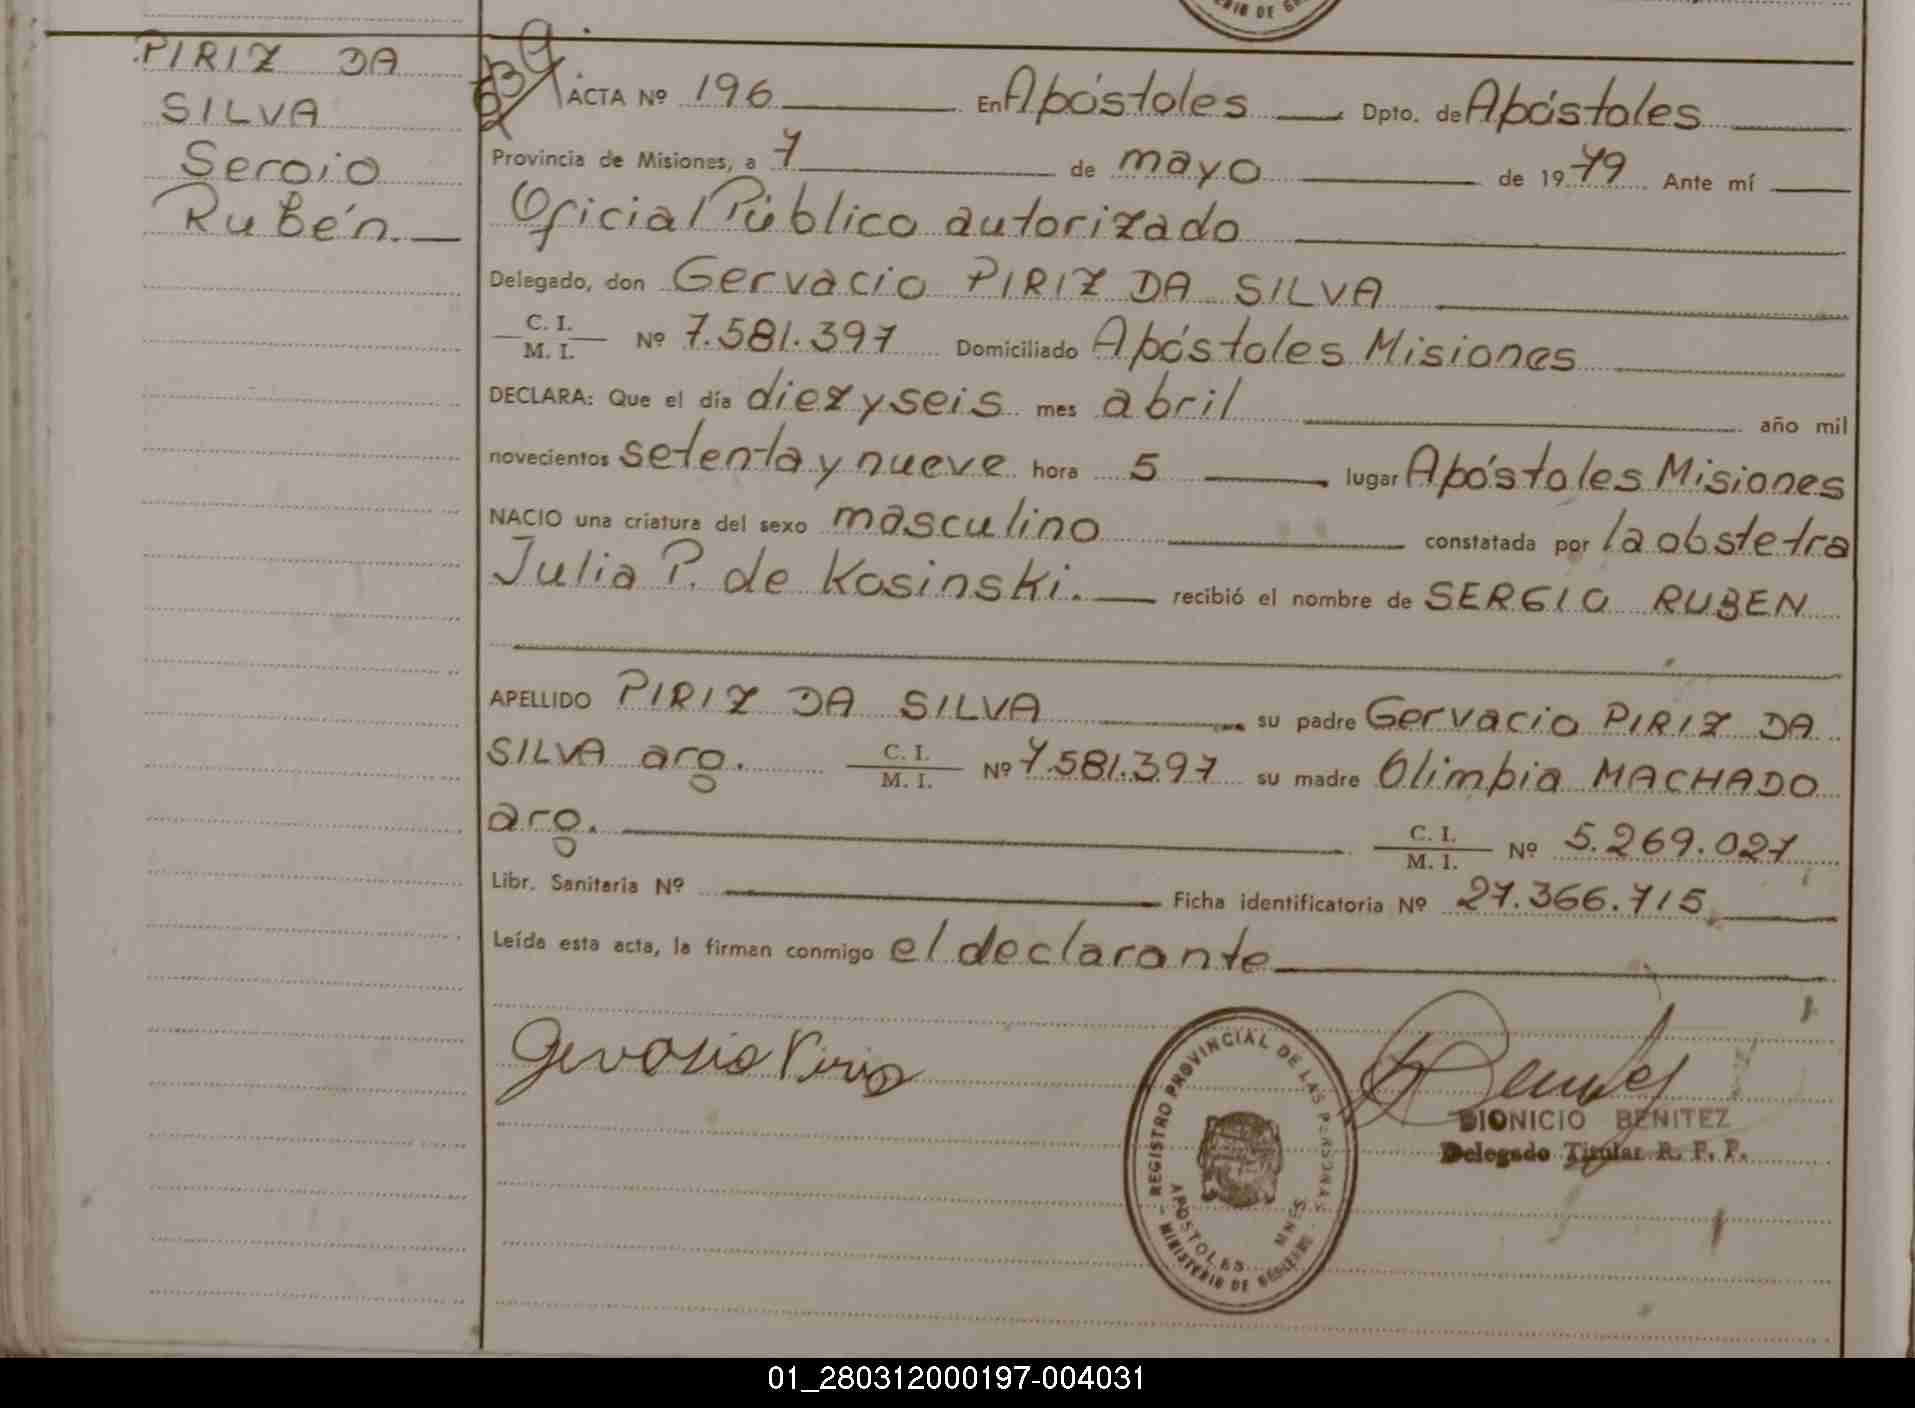 PIRIZ DA
SILVA
Sergio
Rubén.
ACTA Nº 196 En Apóstoles Dpto. de Apóstoles
Provincia de Misiones, a 7 de mayo de 1979 Ante mí
Oficial Público autorizado
Delegado, don Gervacio PIRIZ DA SILVA
C. I.
M. I. Nº 7.581.397 Domiciliado Apóstoles Misiones
DECLARA: Que el día diez y seis mes abril año mil
novecientos setenta y nueve hora 5 lugar Apóstoles Misiones
NACIO una criatura del sexo masculino constatada por la obstetra
Julia P. de Kosinski. recibió el nombre de SERGIO RUBEN
APELLIDO PIRIZ DA SILVA su padre Gervacio PIRIZ DA
SILVA arg. C. I.
M. I. Nº 7.581.397 su madre Olimpia MACHADO
arg. C. I.
M. I. Nº 5.269.027
Libr. Sanitaria Nº Ficha identificatoria Nº 27.366.715
Leída esta acta, la firman conmigo el declarante
Gervasio Piris
REGISTRO PROVINCIAL DE LAS PERSONAS
APOSTOLES MNES
MINISTERIO DE GOBIERNO
DIONICIO BENITEZ
Delegado Titular R. P. P.
01_280312000197-004031